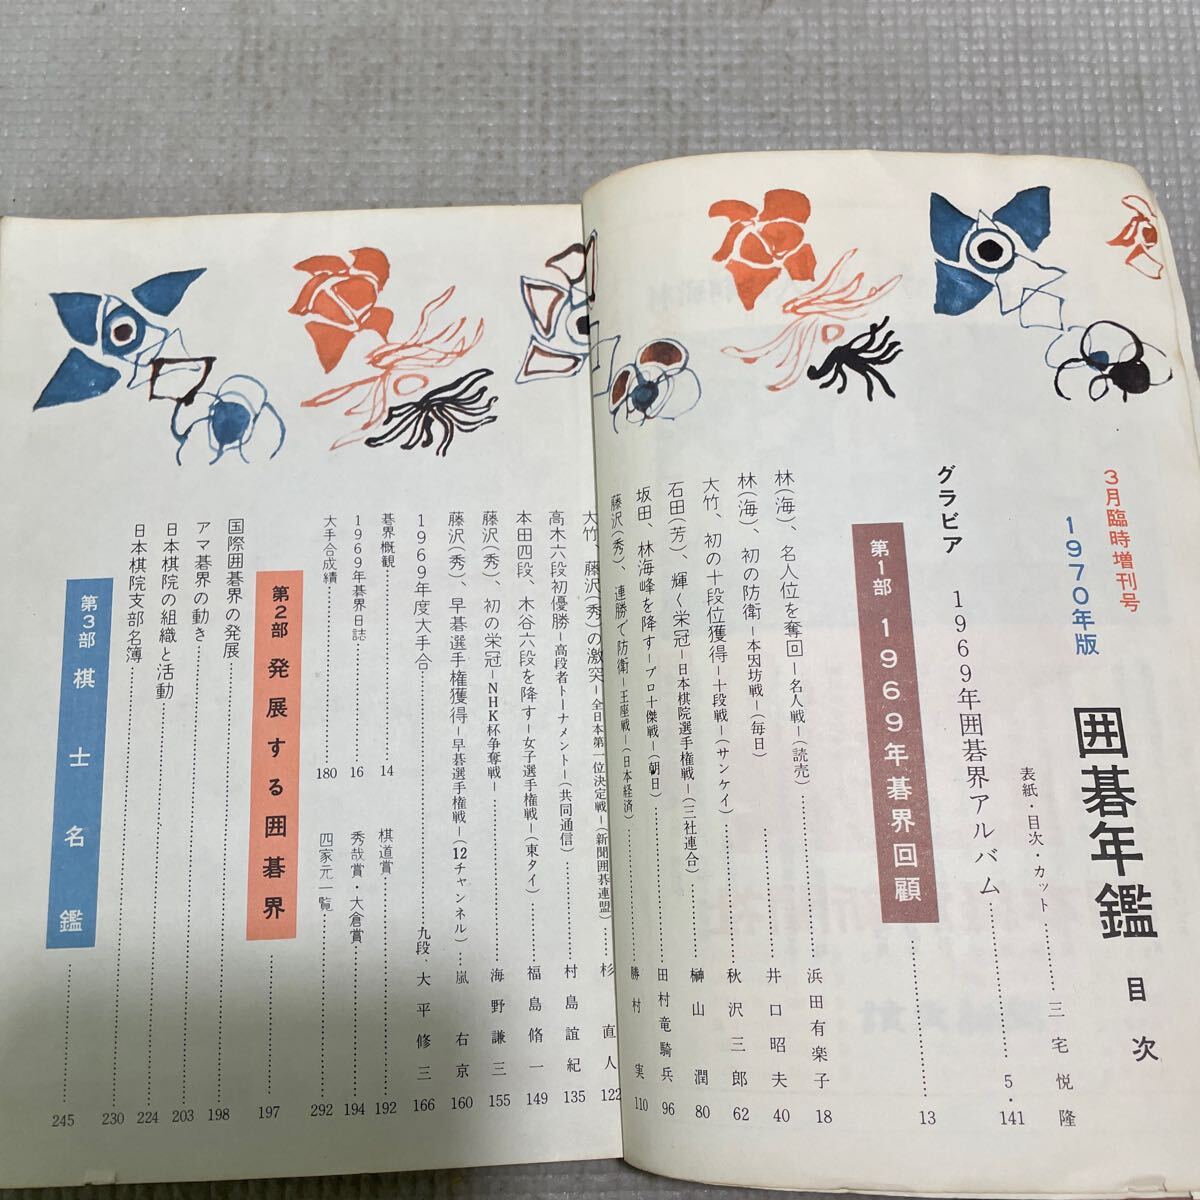 3月臨時増刊号
1970年版
囲碁年鑑 目次
表紙・目次・カット……三宅悦隆
グラビア 1969年囲碁界アルバム……5・141
第1部 1969年碁界回顧……13
林(海)、名人位を奪回―名人戦―(読売)……浜田有楽子 18
林(海)、初の防衛―本因坊戦―(毎日)……井口昭夫 40
大竹、初の十段位獲得―十段戦―(サンケイ)……秋沢三郎 62
石田(芳)、輝く栄冠―日本棋院選手権戦―(三社連合)……榊山潤 80
坂田、林海峰を降す―プロ十傑戦―(朝日)……田村竜騎兵 96
藤沢(秀)、連勝で防衛―王座戦―(日本経済)……勝村実 110
大竹、藤沢(秀)の激突―全日本第一位決定戦―(新聞囲碁連盟)……杉直人 122
高木六段初優勝―高段者トーナメント―(共同通信)……村島誼紀 135
本田四段、木谷六段を降す―女子選手権戦―(東タイ)……福島脩一 149
藤沢(秀)、初の栄冠―NHK杯争奪戦―……海野謙三 155
藤沢(秀)、早碁選手権獲得―早碁選手権戦―(12チャンネル)……嵐右京 160
1969年度大手合……九段・大平修三 166
碁界概観……14
棋道賞……192
1969年碁界日誌……16
秀哉賞・大倉賞……194
大手合成績……180
四家元一覧……292
第2部 発展する囲碁界……197
国際囲碁界の発展……198
アマ碁界の動き……203
日本棋院の組織と活動……224
日本棋院支部名簿……230
第3部 棋士名鑑……245